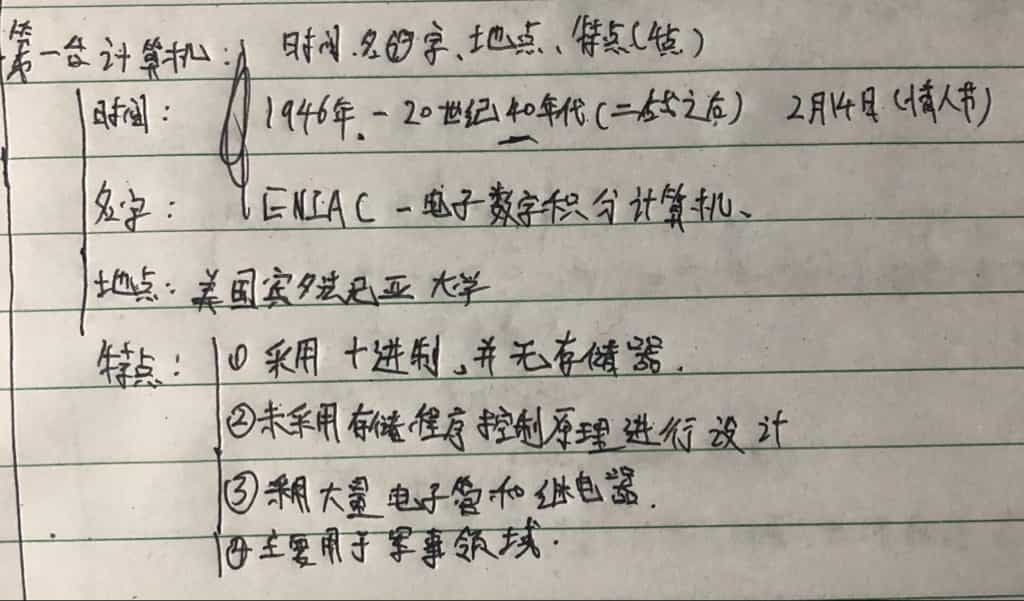 第一台计算机: 时间.名字、地点、特点(4点)
时间: 1946年.-20世纪40年代(二战之后) 2月14日(情人节)
名字: ENIAC-电子数字积分计算机、
地点:美国宾夕法尼亚大学
特点: ①采用十进制,并无存储器.
②未采用存储程序控制原理进行设计
③采用大量电子管和继电器.
④主要用于军事领域.